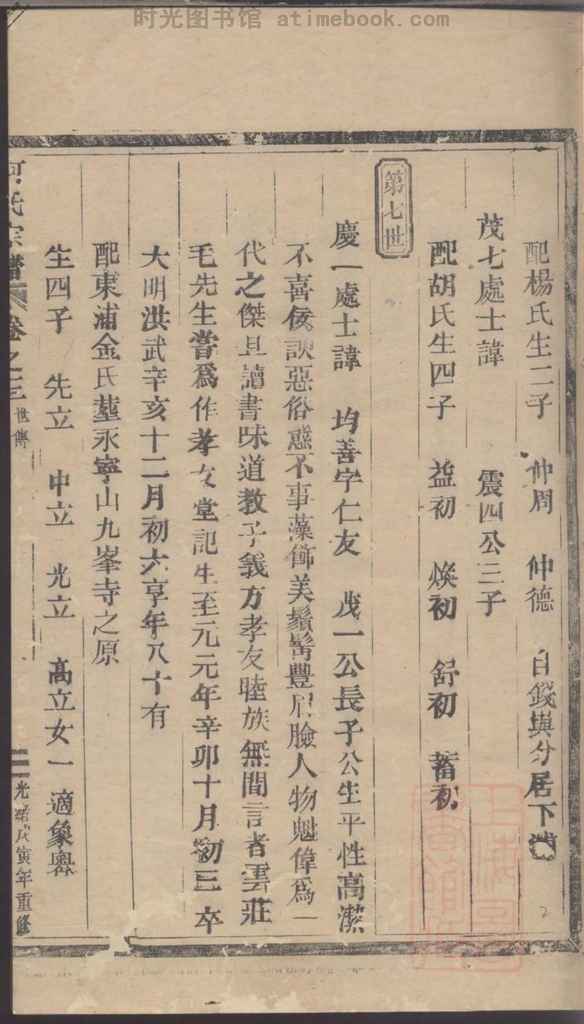 时光图书馆 atimebook.com
配楊氏生二子 仲周 仲德 自錢㙃分居下
茂七處士諱 震四公三子
配胡氏生四子 益初 煥初 舒初 蓄初
第七世
慶一處士諱 均善字仁友 茂一公長子公生平性高潔
不喜侫諛惡俗惑不事藻飾美鬚髯豐眉臉人物魁偉爲一
代之傑且讀書味道教子義方孝友睦族無間言者雲莊
毛先生嘗爲作孝友堂記生至元元年辛卯十月初三卒
大明洪武辛亥十二月初六享年八十有
配東浦金氏墓永寧山九峯寺之原
生四子 先立 中立 光立 高立女一 適象粤
何氏宗譜 卷之三 世傳
二
光緒戊寅年重修